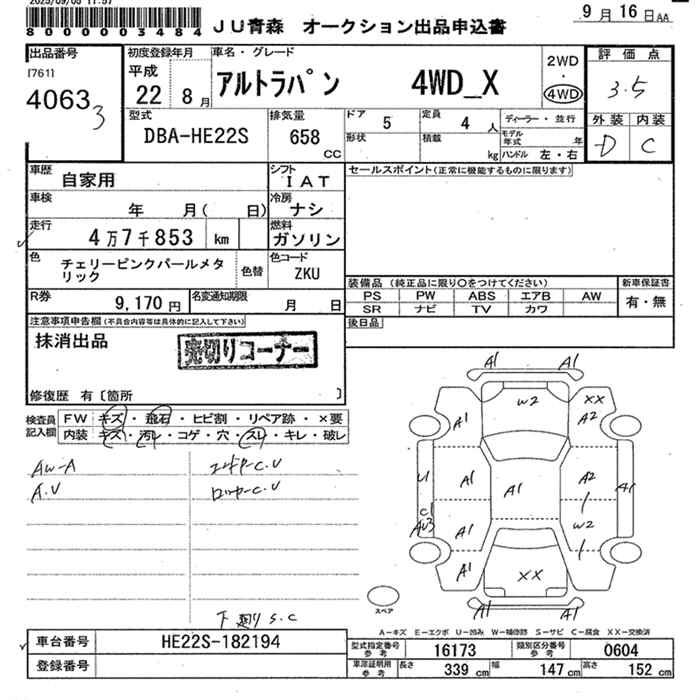 2025/09/05 11:57
8000003484
JU青森 オークション出品申込書
9月16日AA
出品番号
[761]
40633
初度登録年月
平成
22 8月
車名・グレード
アルトラパン 4WD_X
2WD
・
4WD
評価点
3.5
外装 内装
D C
型式
DBA-HE22S
排気量
658
CC
ドア 5
定員 4 人
形状
積載 kg
ディーラー・並行
モデル年式 年
ハンドル 左・右
車歴
自家用
シフト
IAT
車検
年 月( 日)
冷房
ナシ
走行
4万7千853 km
燃料
ガソリン
色
チェリーピンクパールメタリック
色替
色コード
ZKU
R券
9,170円
名変通知期限
月 日
セールスポイント(正常に機能するものに限ります)
装備品 (純正品に限り〇をつけてください)
PS PW ABS エアB AW
SR ナビ TV カワ
新車保証書
有・無
後日品
注意事項申告欄(不具合内容等は具体的に記入して下さい)
抹消出品
売切りコーナー
修復歴 有〔箇所 〕
検査員記入欄
FW キズ・飛石・ヒビ割・リペア跡・×要
内装 キズ・汚レ・コゲ・穴・スレ・キレ・破レ
AW-A
A.U
コアサポC.U
ロッカーC.U
下廻りS.C
A1 A1
W2
XX
A2
A1
U
A1
A1
A2
A1
C1
AU3
A1
W2
A1
XX
A1 A1
スペア
A-キズ E-エクボ U-凹み W-補修跡 S-サビ C-腐食 XX-交換済
車台番号
HE22S-182194
登録番号
型式指定番号参考
16173
類別区分番号参考
0604
車庫証明用参考
長さ 339 cm
幅 147 cm
高さ 152 cm